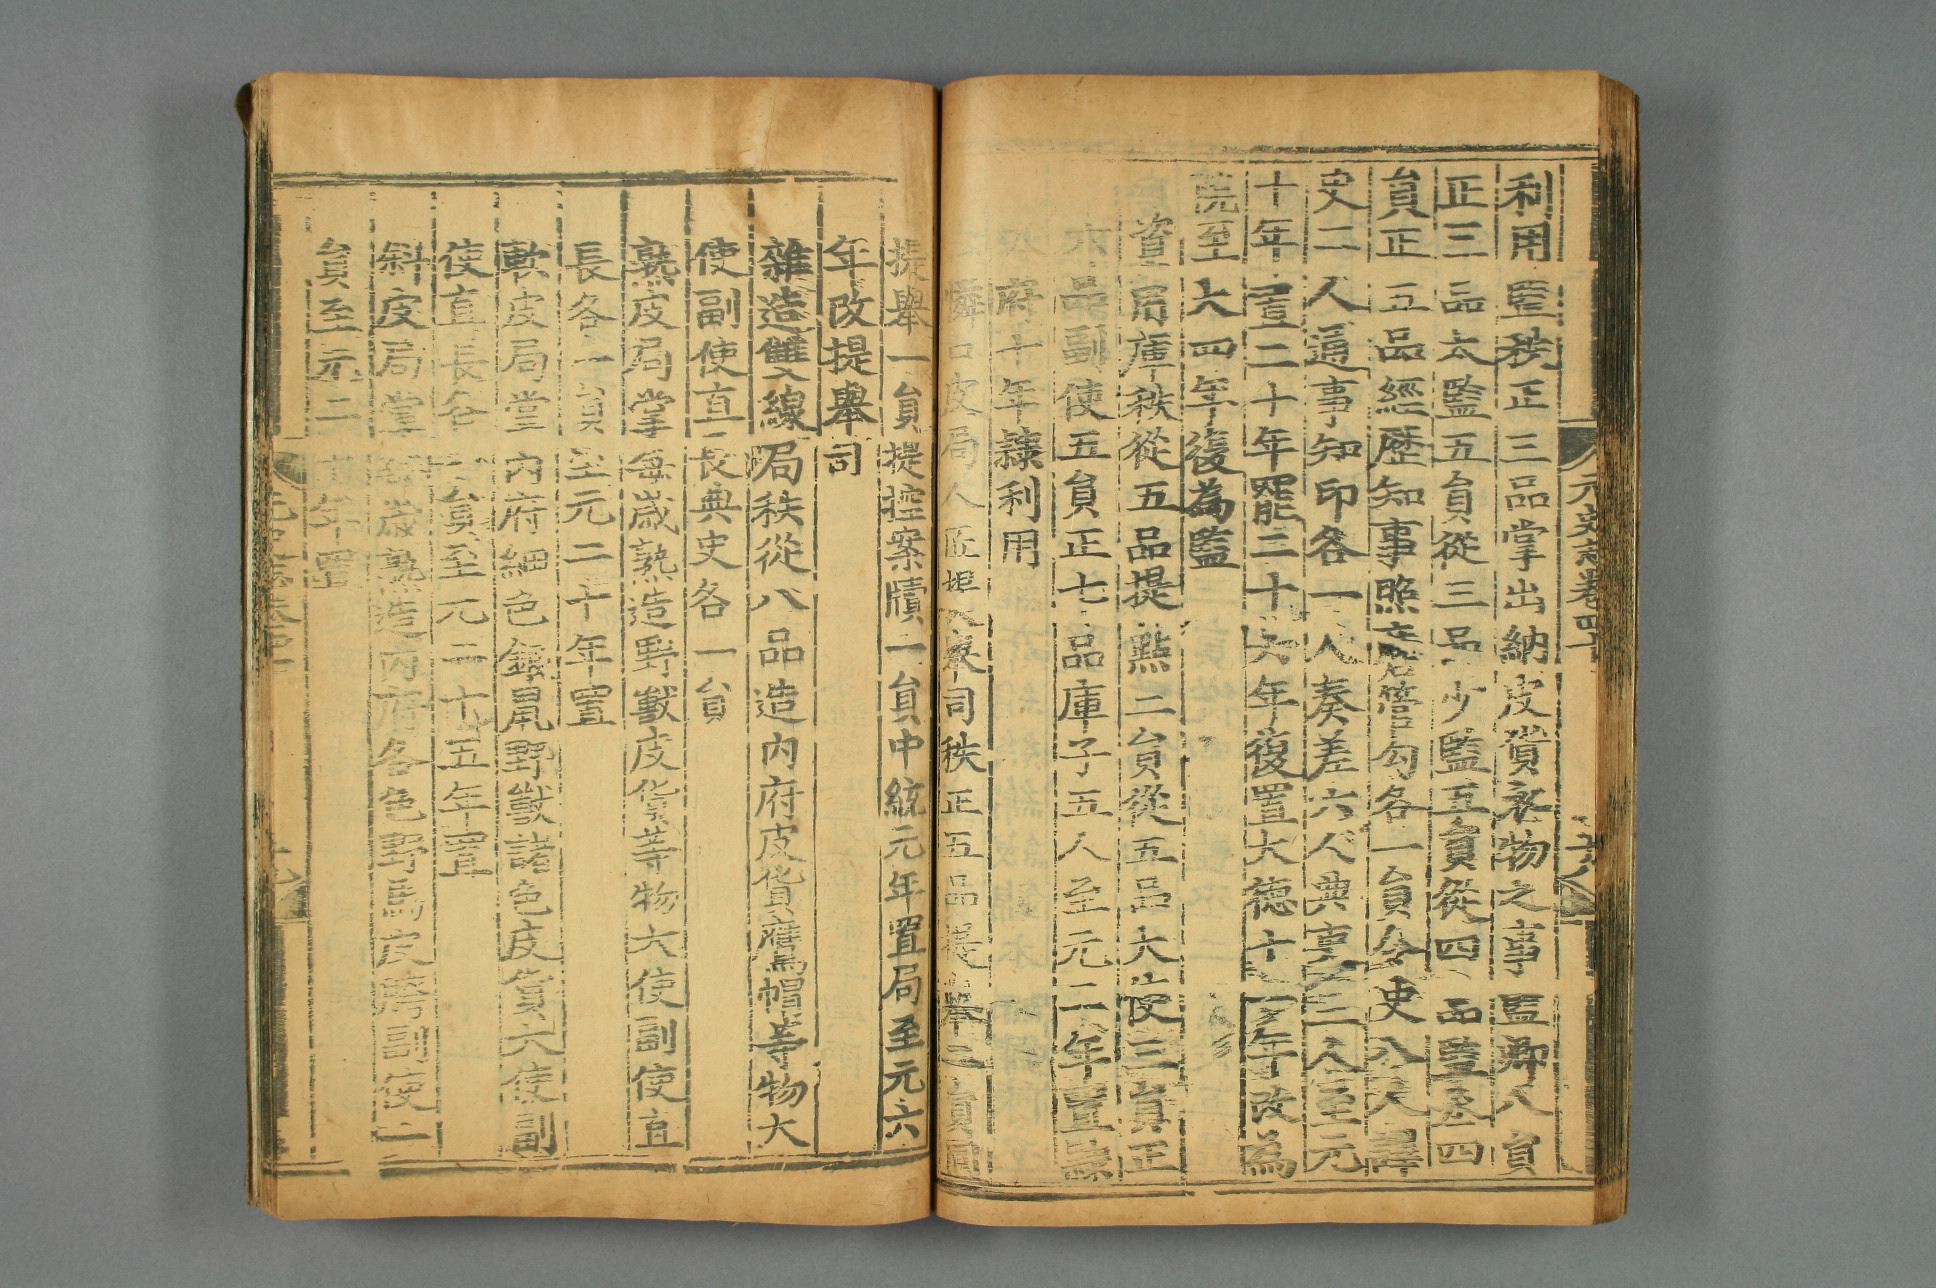 元史志卷四十
利用監秩正三品掌出納皮貨衣物之事監卿八員
正三品太監五員從三品少監五員從四品監丞四
員正五品經歷知事照磨管勾各一員令史八人譯
史二人通事知印各一人奏差六人典吏三人至元
十年置二十年罷二十六年復置大德十一年改為
院至大四年復為監
資用庫秩從五品提點二員從五品大使三員正
六品副使五員正七品庫子五人至元二年置隸
府十年隸利用
皮局人匠提舉司秩正五品提舉二員同
提舉一員提控案牘一員中統元年置局至元六
年改提舉司
雜造雙線局秩從八品造內府皮貨鷹帽等物大
使副使直長典史各一員
熟皮局掌每歲熟造野獸皮貨等物大使副使直
長各一員至元二十年置
軟皮局掌內府細色銀鼠野獸諸色皮貨大使副
使直長各一員至元二十五年置
斜皮局掌每歲熟造內府各色野馬皮胯副使二
員至元二十年置